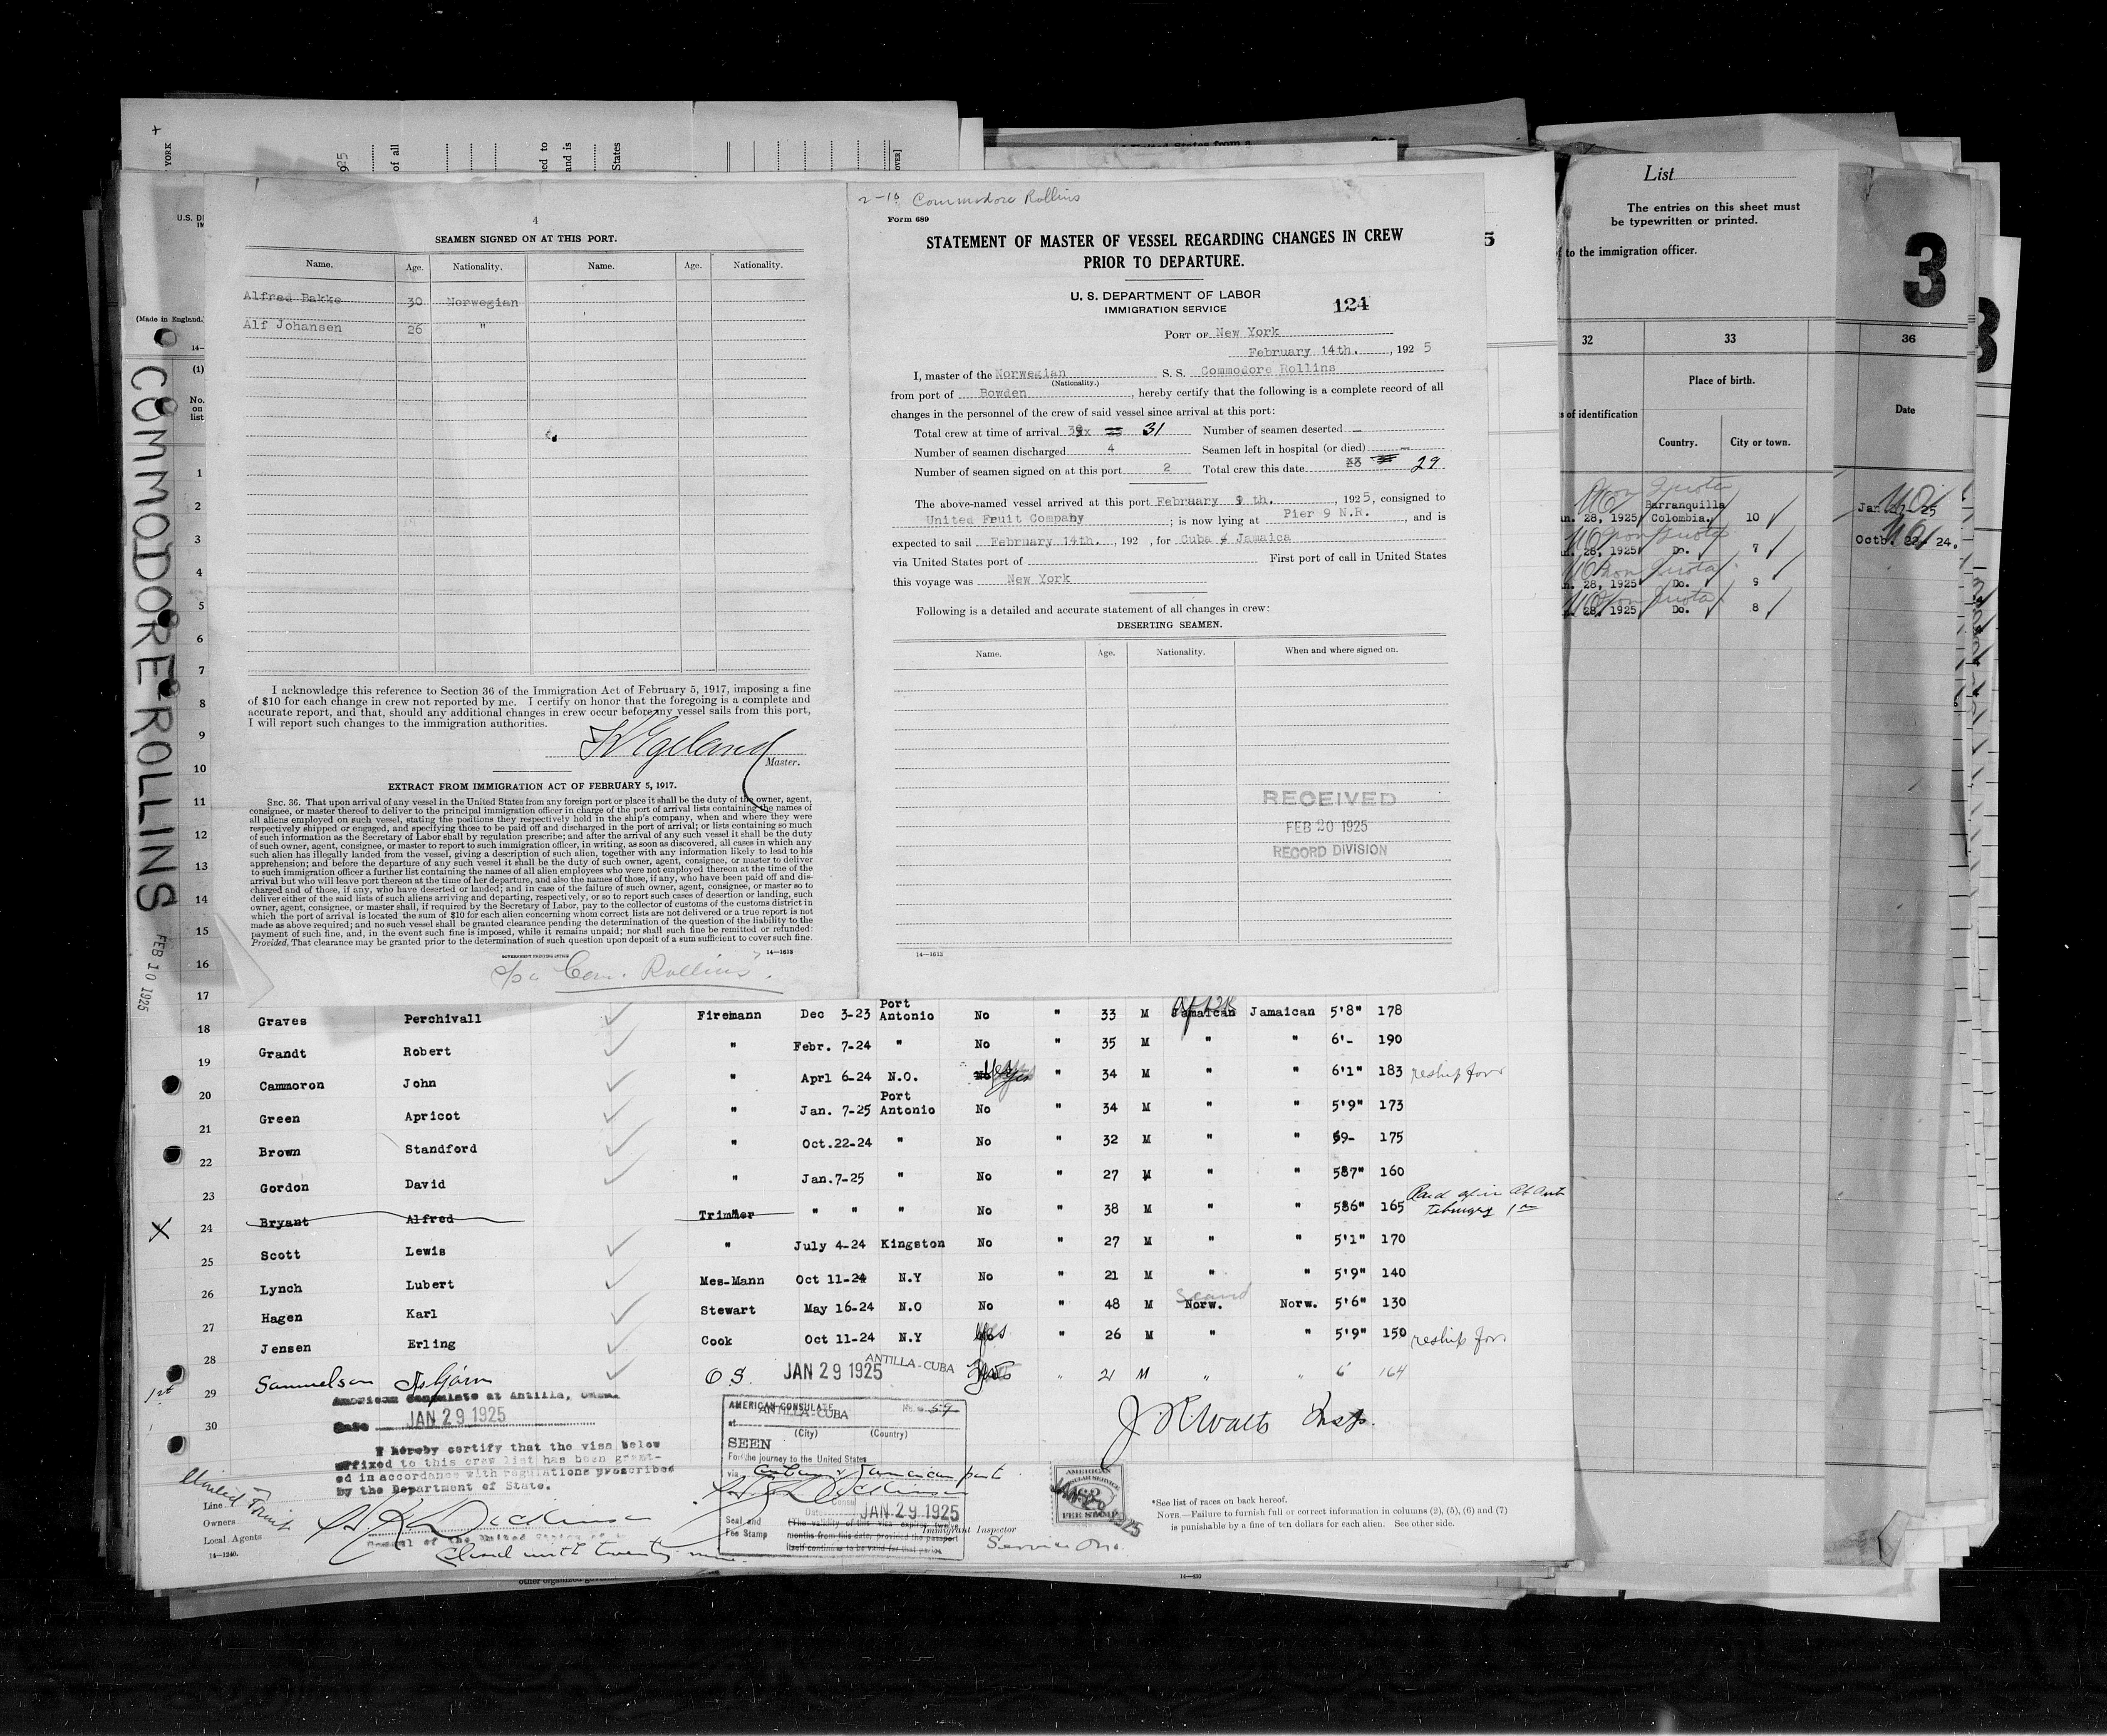 4
SEAMEN SIGNED ON AT THIS PORT.
Name. Age. Nationality. Name. Age. Nationality.
Alfred Bakke 30 Norwegian
Alf Johansen 26 "
I acknowledge this reference to Section 36 of the Immigration Act of February 5, 1917, imposing a fine
of $10 for each change in crew not reported by me. I certify on honor that the foregoing is a complete and
accurate report, and that, should any additional changes in crew occur before my vessel sails from this port,
I will report such changes to the immigration authorities.
Master.
EXTRACT FROM IMMIGRATION ACT OF FEBRUARY 5, 1917.
SEC. 36. That upon arrival of any vessel in the United States from any foreign port or place it shall be the duty of the owner, agent,
consignee, or master thereof to deliver to the principal immigration officer in charge of the port of arrival lists containing the names of
all aliens employed on such vessel, stating the positions they respectively hold in the ship's company, when and where they were
respectively shipped or engaged, and specifying those to be paid off and discharged in the port of arrival; or lists containing so much
of such information as the Secretary of Labor shall by regulation prescribe; and after the arrival of any such vessel it shall be the duty
of such owner, agent, consignee, or master to report to such immigration officer, in writing, as soon as discovered, all cases in which any
such alien has illegally landed from the vessel, giving a description of such alien, together with any information likely to lead to his
apprehension; and before the departure of any such vessel it shall be the duty of such owner, agent, consignee, or master to deliver
to such immigration officer a further list containing the names of all alien employees who were not employed thereon at the time of the
arrival but who will leave port thereon at the time of her departure, and also the names of those, if any, who have been paid off and dis-
charged and of those, if any, who have deserted or landed; and in case of the failure of such owner, agent, consignee, or master so to
deliver either of the said lists of such aliens arriving and departing, respectively, or so to report such cases of desertion or landing, such
owner, agent, consignee, or master, shall, if required by the Secretary of Labor, pay to the collector of customs of the customs district in
which the port of arrival is located the sum of $10 for each alien concerning whom correct lists are not delivered or a true report is not
made as above required; and no such vessel shall be granted clearance pending the determination of the question of the liability to the
payment of such fine, and, in the event such fine is imposed, while it remains unpaid; nor shall such fine be remitted or refunded:
Provided, That clearance may be granted prior to the determination of such question upon deposit of a sum sufficient to cover such fine.
GOVERNMENT PRINTING OFFICE 14—1613
Com. Rollins
2-10 Commodore Rollins
Form 689
STATEMENT OF MASTER OF VESSEL REGARDING CHANGES IN CREW
PRIOR TO DEPARTURE.
U. S. DEPARTMENT OF LABOR
IMMIGRATION SERVICE
124
PORT OF New York
February 14th., 1925
I, master of the Norwegian S. S. Commodore Rollins
(Nationality.)
from port of Bowden, hereby certify that the following is a complete record of all
changes in the personnel of the crew of said vessel since arrival at this port:
Total crew at time of arrival 31 Number of seamen deserted —
Number of seamen discharged 4 Seamen left in hospital (or died) —
Number of seamen signed on at this port 2 Total crew this date 29
The above-named vessel arrived at this port February 9 th., 1925, consigned to
United Fruit Company; is now lying at Pier 9 N.R., and is
expected to sail February 14th., 192 , for Cuba & Jamaica
via United States port of First port of call in United States
this voyage was New York
Following is a detailed and accurate statement of all changes in crew:
DESERTING SEAMEN.
Name. Age. Nationality. When and where signed on.
RECEIVED
FEB 20 1925
RECORD DIVISION
14—1613
COMMODORE ROLLINS
FEB 10 1925
YORK
of all
and is
States
(Made in England.)
(1)
No.
on
list
1
2
3
4
5
6
7
8
9
10
11
12
13
14
15
16
17
18 Graves Perchivall Firemann Dec 3-23 Port Antonio No " 33 M Jamaican Jamaican 5'8" 178
19 Grandt Robert " Febr. 7-24 " No " 35 M " " 6'- 190
20 Cammoron John " Aprl 6-24 N.O. Yes " 34 M " " 6'1" 183 reship for
21 Green Apricot " Jan. 7-25 Port Antonio No " 34 M " " 5'9" 173
22 Brown Standford " Oct.22-24 " No " 32 M " " 59- 175
23 Gordon David " Jan.7-25 " No " 27 M " " 587" 160
24 Bryant Alfred Trimmer " " " No " 38 M " " 586" 165
25 Scott Lewis " July 4-24 Kingston No " 27 M " " 5'1" 170
26 Lynch Lubert Mes-Mann Oct 11-24 N.Y No " 21 M " " 5'9" 140
27 Hagen Karl Stewart May 16-24 N.O No " 48 M Scand Norw. Norw. 5'6" 130
28 Jensen Erling Cook Oct 11-24 N.Y yes " 26 M " " 5'9" 150 reship for
29 Samuelson O.S. JAN 29 1925 ANTILLA-CUBA " 21 M " " 6' 164
30
American Consulate at Antilla,
Date JAN 29 1925
I hereby certify that the visa below
affixed to this crew list has been grant-
ed in accordance with regulations prescribed
by the Department of State.
United Fruit
Line
Owners
Local Agents
14-1240.
AMERICAN CONSULATE No. 59
at ANTILLA-CUBA
(City) (Country)
SEEN
For the journey to the United States
via Cuban & Jamaican ports
Consul
Date JAN 29 1925
Seal and
Fee Stamp
(The validity of this visa expires twelve
months from this date, provided the passport
itself continues to be valid for that period.
Immigrant Inspector
J. R. Walts Insp.
AMERICAN
CONSULAR SERVICE
FEE STAMP
*See list of races on back hereof.
NOTE.—Failure to furnish full or correct information in columns (2), (5), (6) and (7)
is punishable by a fine of ten dollars for each alien. See other side.
14—450
5
List
The entries on this sheet must
be typewritten or printed.
to the immigration officer.
32 33
Place of birth.
of identification
Country. City or town.
Non Quota
28, 1925 Barranquilla Colombia. 10
28, 1925 Do. 7
28, 1925 Do. 9
28, 1925 Do. 8
3
36
Date
Octb. 22- 24.